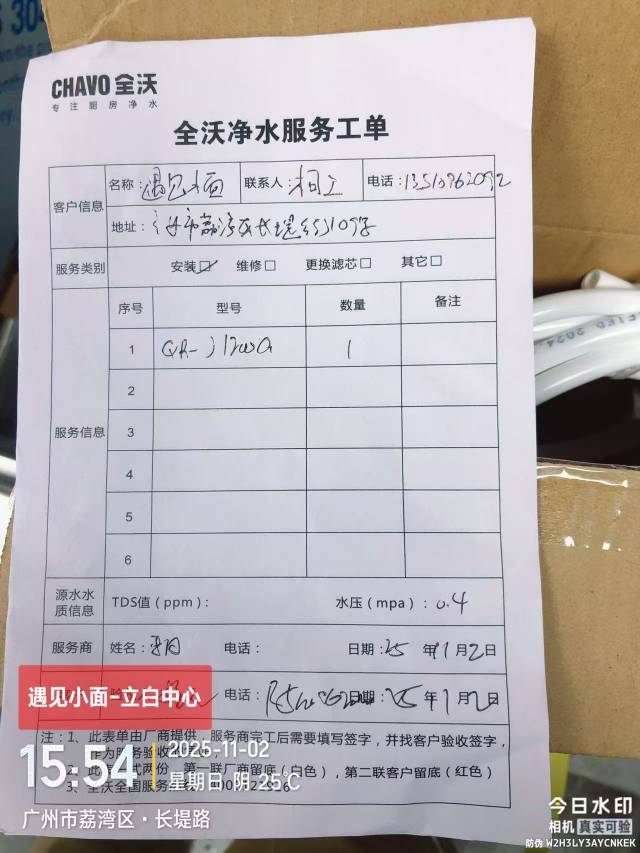 CHAVO 全沃
专注厨房净水
全沃净水服务工单
客户信息
名称：遇见小面 联系人： 电话：13510962092
地址：
服务类别 安装☑ 维修□ 更换滤芯□ 其它□
服务信息
序号 型号 数量 备注
1 1
2
3
4
5
6
源水水质信息 TDS值（ppm）： 水压（mpa）：0.4
服务商 姓名： 电话： 日期：25年11月2日
电话： 日期：25年11月2日
遇见小面-立白中心
注：1、此表单由厂商提供，服务商完工后需要填写签字，并找客户验收签字，
作为服务验收
2、此 式两份，第一联厂商留底（白色），第二联客户留底（红色）
3、全沃全国服务
15:54
2025-11-02
星期日 阴 25℃
广州市荔湾区·长堤路
今日水印
相机 真实可验
防伪 W2H3LY3AYCNKEK
FIED 2024